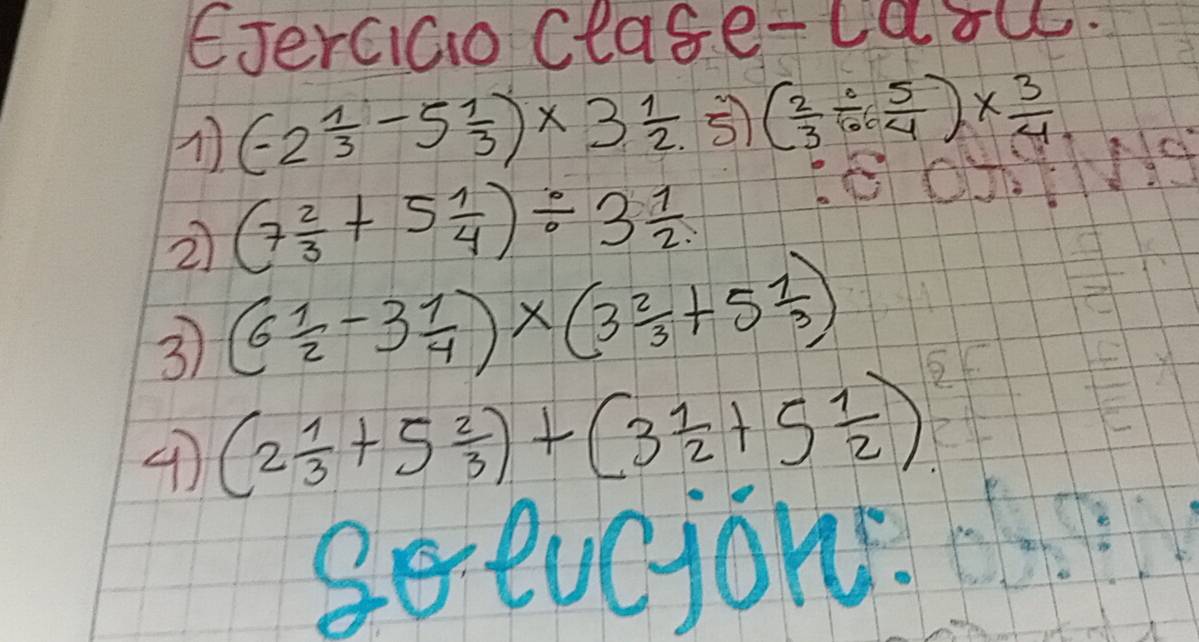 Ejercicio clase-
1) (-2 1/3 - 5 1/3) × 3 1/2. 5) (2/3 ÷ 5/4) × 3/4
2) (7 2/3 + 5 1/4) ÷ 3 1/2.
3) (6 1/2 - 3 1/4) × (3 2/3 + 5 1/3)
4) (2 1/3 + 5 2/3) + (3 1/2 + 5 1/2).
Solución: